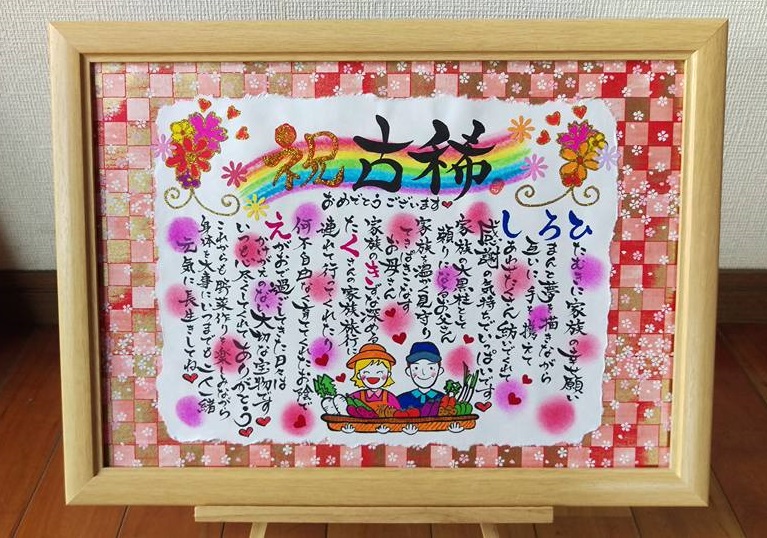 祝古稀
おめでとうございます
ひたむきに家族の幸せ願い
ろまんと夢を描きながら
互いに手を携えて
しあわせたくさん紡いでくれて
感謝の気持ちでいっぱいです
家族の大黒柱として
頼りになるお父さん
家族を温か見守り
てきぱきこなす
お母さん
家族のきずな深める
たくさんの家族旅行
連れて行ってくれたり
何不自由なく育ててくれたお陰で
えがおで過ごしてきた日々は
かけがえのない大切な宝物です
いつも尽くしてくれてありがとう
これからも野菜作りを楽しみながら
身体を大事にいつまでも二人一緒
元気に長生きしてね